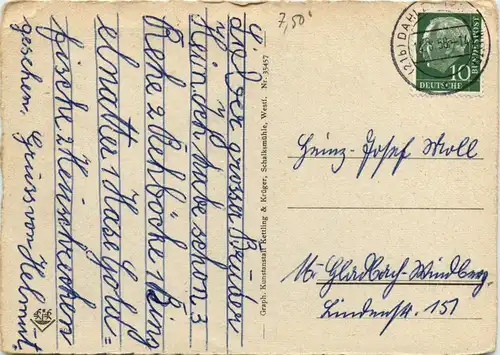 7,50
Lieber grosser Bruder
Heinz habe schon 3
Rehe 2 Rehböcke 1 Ring
elnatter 1 Hasel Gold=
fische 2 Menschen
gesehen. Gruss von Helmut.
Graph. Kunstanstalt Kettling & Krüger, Schalksmühle, Westf. Nr. 35457
(21b) DAHL
10
DEUTSCHE
BUNDESPOST
Heinz-Josef Moll
M. Gladbach-Windberg
Lindenstr. 151